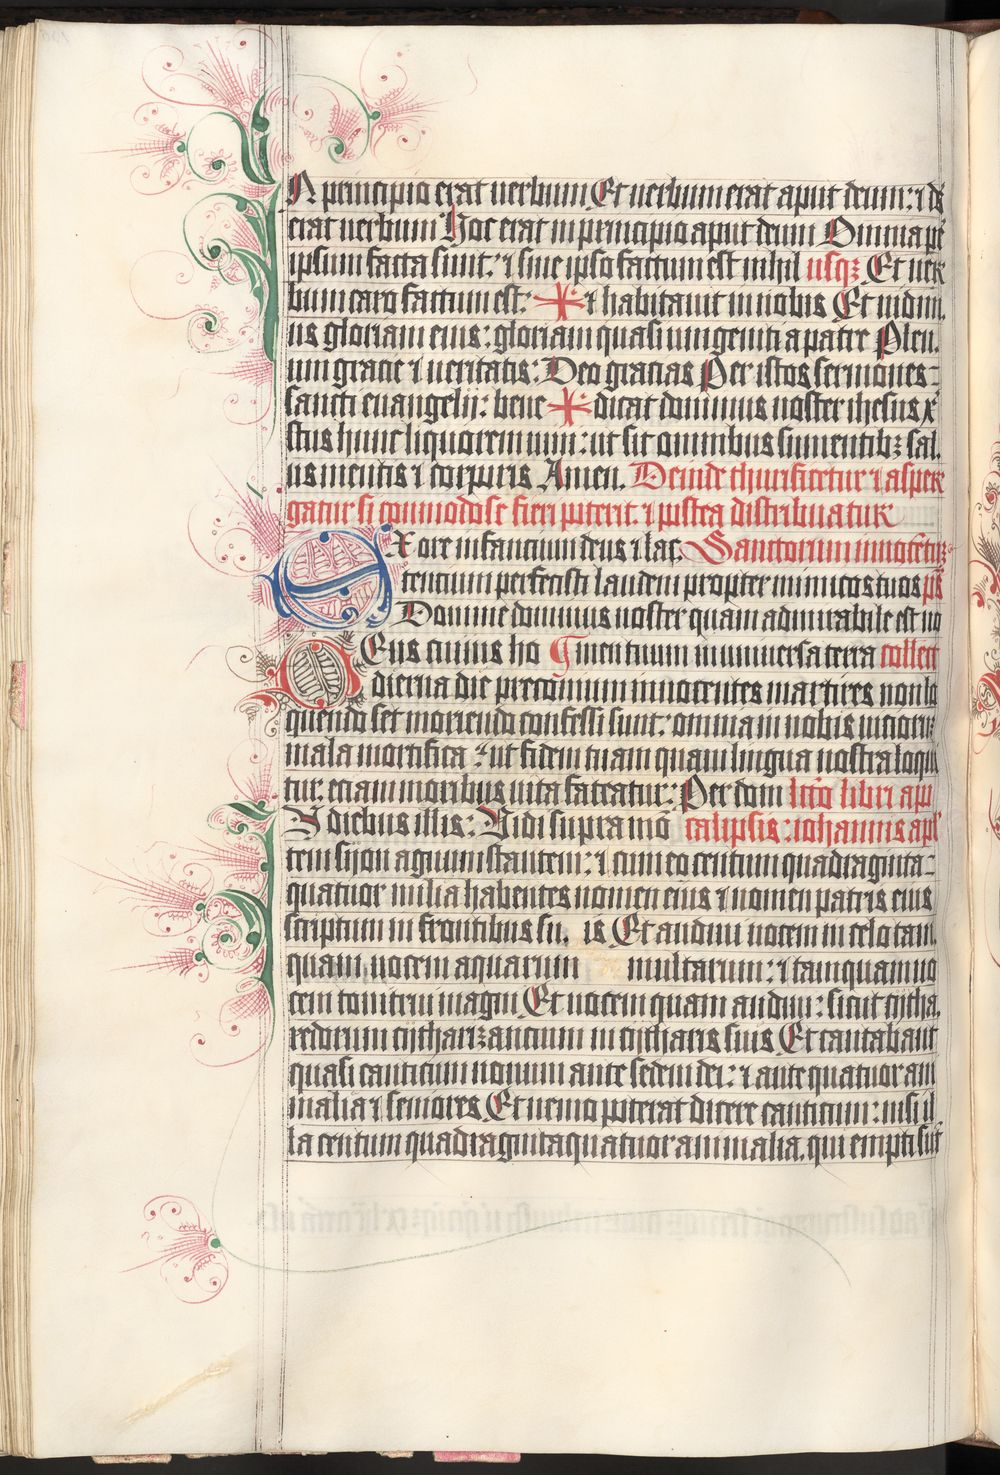 IN principio erat uerbum Et uerbum erat aput deum: ⁊ ds̄
erat uerbum Hoc erat in principio aput deum Omnia p̄
ipsum facta sunt: ⁊ sine ipso factum est nihil usqꝫ Et uer
bum caro factum est: ✠ ⁊ habitauit in nobis Et uidim
us gloriam eius: gloriam quasi unigeniti a patre Plen
um gracie ⁊ ueritatis: Deo gracias Per istos sermones
sancti euangelij: bene ✠ dicat dominus noster ihesus xp̄
stus hunc liquorem uini: ut sit omnibus sumentibꝫ sal
us mentis ⁊ corporis Amen. Deinde thurificetur ⁊ asper
gatur si commodose fieri poterit ⁊ postea distribuatur
EX ore infancium deus ⁊ lac Sanctorum innocētū
tencium perfecisti laudem propter inimicos tuos ps̄
Domine dominus noster quam admirabile est no
DEus cuius ho men tuum in uniuersa terra collect
dierna die preconium innocentes martires non lo
quendo set moriendo confessi sunt: omnia in nobis uiciorū
mala mortifica: ut fidem tuam quam lingua nostra loqui
tur: eciam moribus uita fateatur: Per dom lc̄o libri apo
IN diebus illis: Vidi supra mō calipsis: iohannis apl̄
tem sijon agnum stantem: ⁊ cum eo centum quadraginta
quatuor milia habentes nomen eius ⁊ nomen patris eius
scriptum in frontibus su is Et audiui uocem in celo tam
quam uocem aquarum multarum: ⁊ tamquam uo
cem tonitrui magni Et uocem quam audiui: sicut cijtha
redorum cijtharizancium in cijtharis suis Et cantabant
quasi canticum nouum ante sedem dei: ⁊ ante quatuor ani
malia ⁊ seniores Et nemo poterat dicere canticum: nisi il
la centum quadragintaquatuor animalia. qui empti sūt